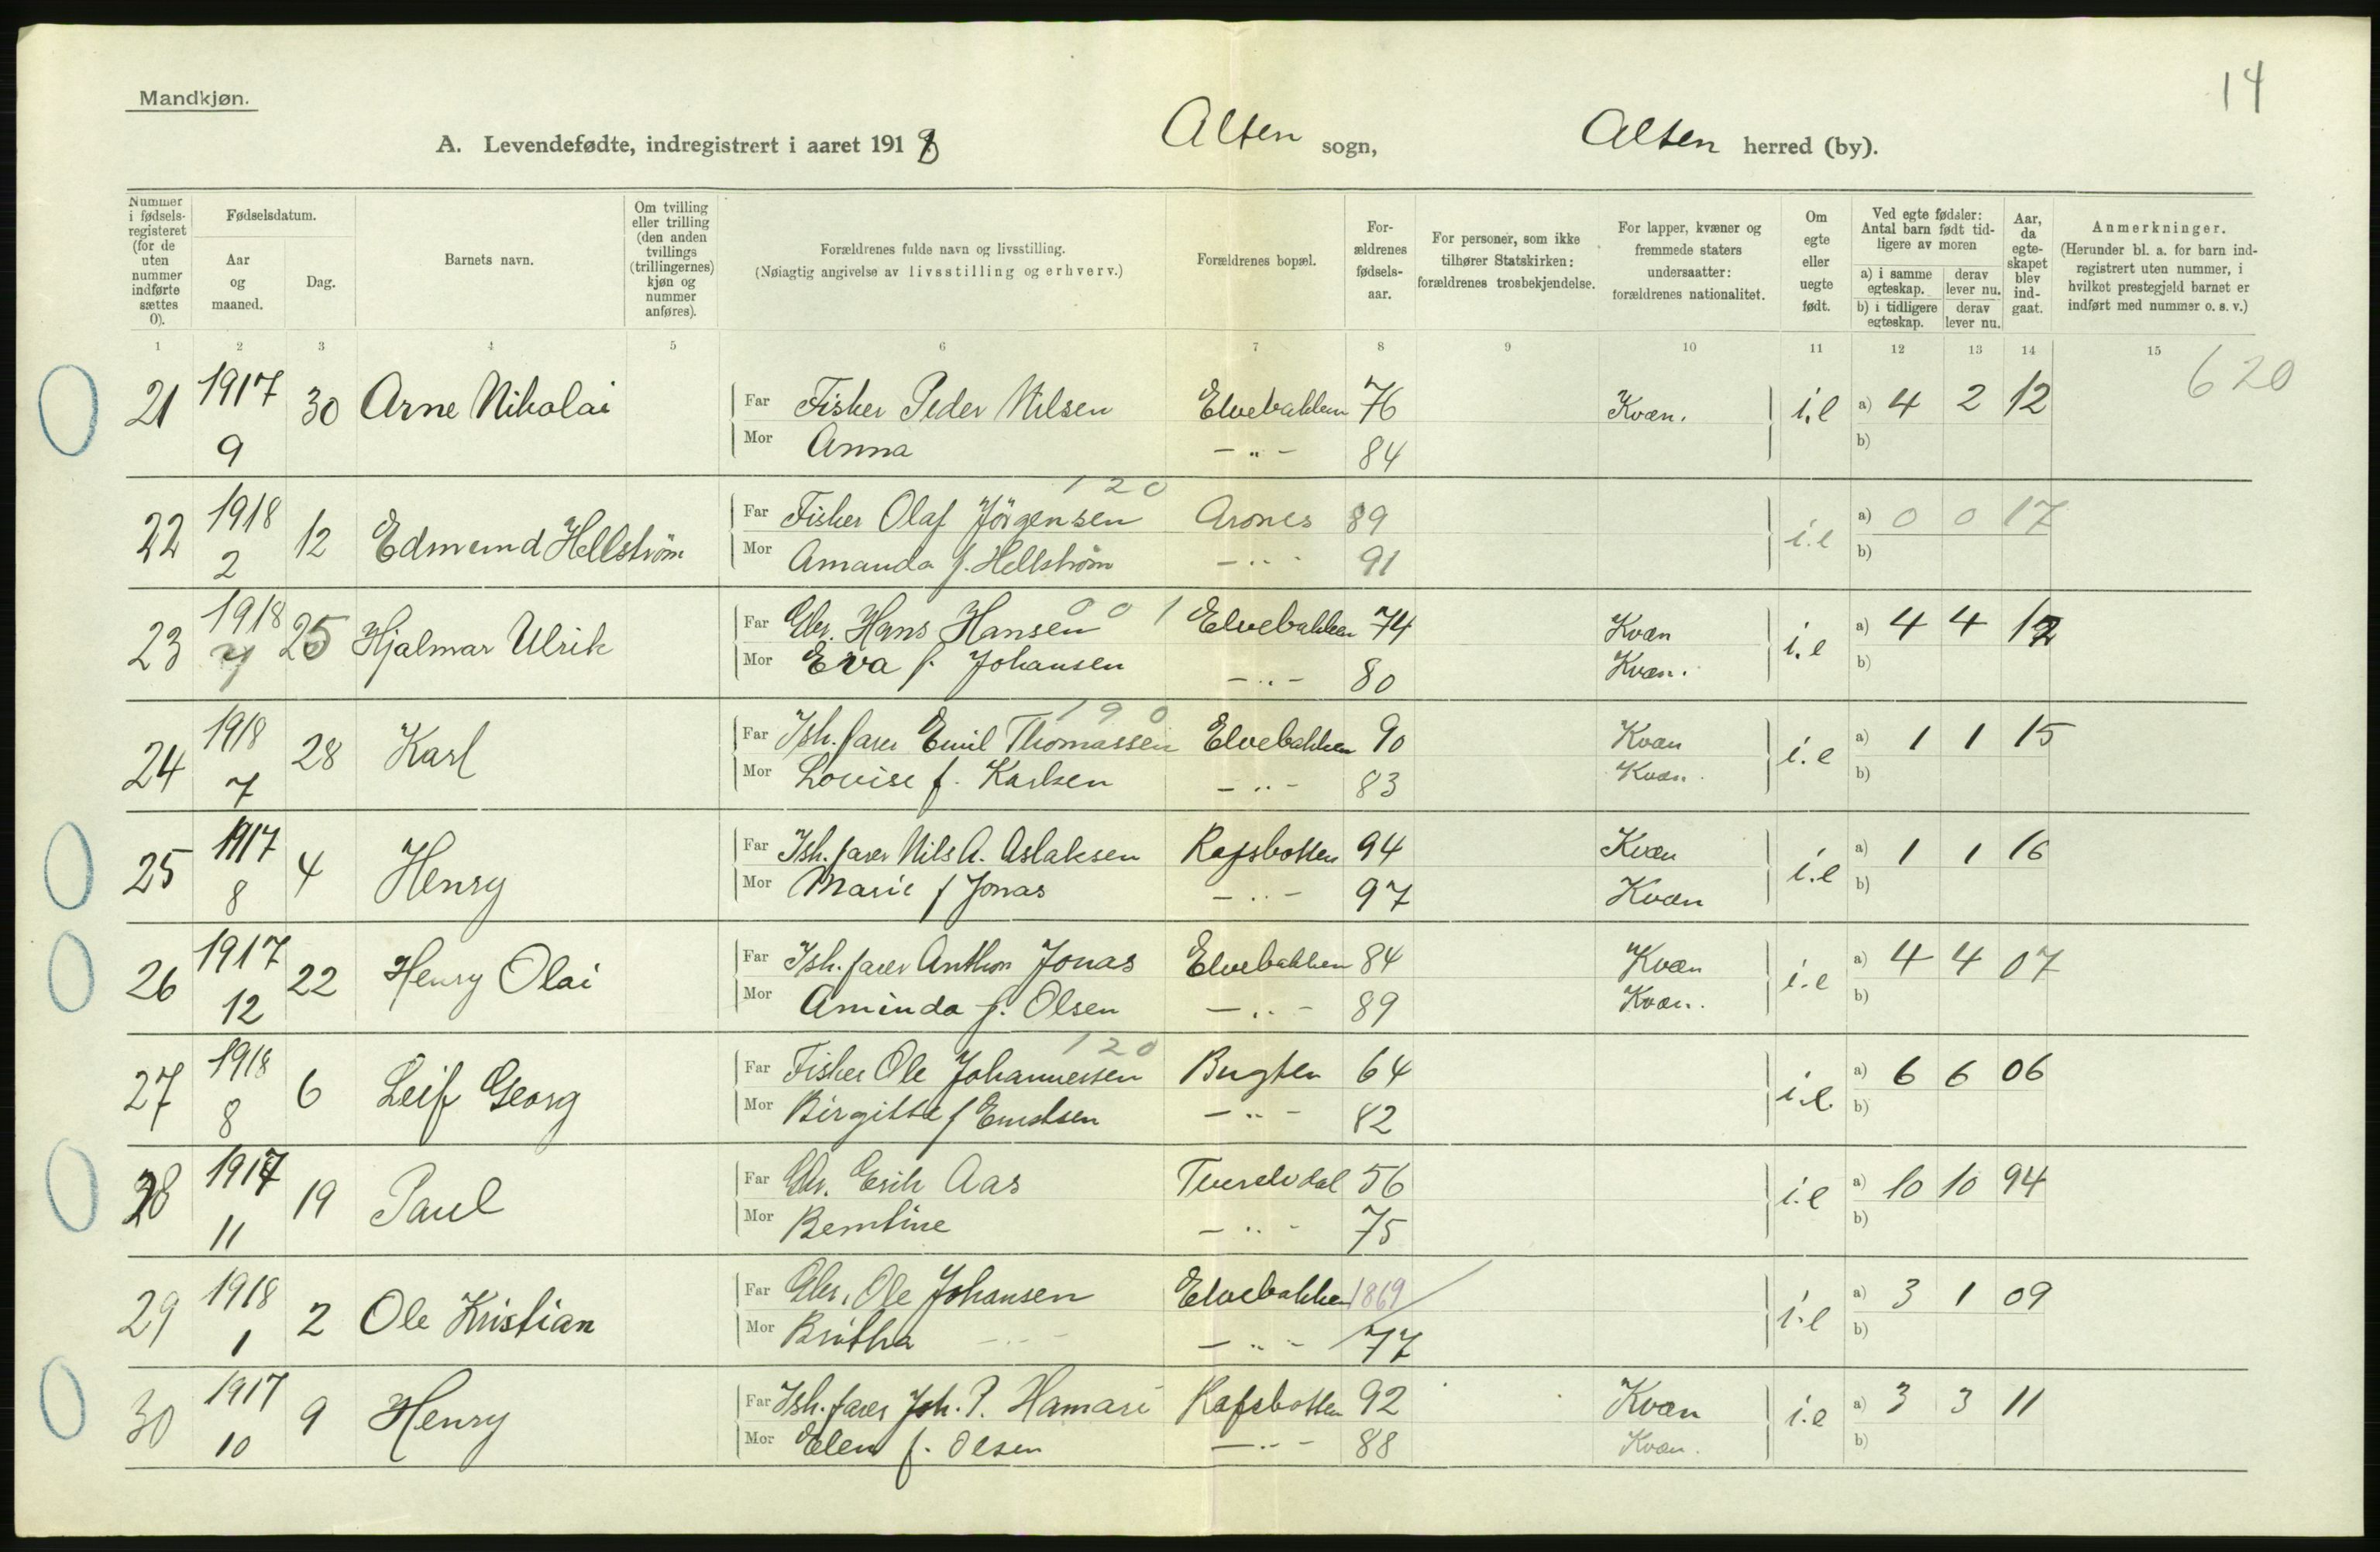 14
Mandkjøn.
A. Levendefødte, indregistrert i aaret 1918 Alten sogn, Alten herred (by).
Nummer i fødselsregisteret (for de uten nummer indførte sættes 0).
Fødselsdatum.
Aar og maaned.
Dag.
Barnets navn.
Om tvilling eller trilling (den anden tvillings (trillingernes) kjøn og nummer anføres).
Forældrenes fulde navn og livsstilling.
(Nøiagtig angivelse av livsstilling og erhverv.)
Forældrenes bopæl.
Forældrenes fødselsaar.
For personer, som ikke tilhører Statskirken: forældrenes trosbekjendelse.
For lapper, kvæner og fremmede staters undersaatter: forældrenes nationalitet.
Om egte eller uegte født.
Ved egte fødsler: Antal barn født tidligere av moren
a) i samme egteskap. derav lever nu.
b) i tidligere egteskap. derav lever nu.
Aar, da egteskapet blev indgaat.
Anmerkninger.
(Herunder bl. a. for barn indregistrert uten nummer, i hvilket prestegjeld barnet er indført med nummer o. s. v.)
1 2 3 4 5 6 7 8 9 10 11 12 13 14 15
620
21 1917 30 Arne Nikolai Far Fisker Peder Nilsen Elvebakken 76 Kvæn. i.e a) 4 2 12
9 Mor Anna — " — 84 b)
120
22 1918 12 Edmund Hellstrøm Far Fisker Olaf Jörgensen Arones 89 i.e a) 0 0 17
2 Mor Amanda f. Hellstrøm — " 91 b)
001
23 1918 25 Hjalmar Ulrik Far Gbr. Hans Hansen Elvebakken 74 Kvæn i.e a) 4 4 12
Mor Eva f. Johansen — " — 80 Kvæn. b)
190
24 1918 28 Karl Far Ish.farer Emil Thomassen Elvebakken 90 Kvæn i.e a) 1 1 15
7 Mor Lovise f. Karlsen — " — 83 Kvæn. b)
25 1917 4 Henry Far Ish.farer Nils A. Aslaksen Rafsbotten 94 Kvæn i.e a) 1 1 16
8 Mor Marie f Jonas — " — 97 Kvæn b)
26 1917 22 Henry Olai Far Ish.farer Anthon Jonas Elvebakken 84 Kvæn i.e a) 4 4 07
12 Mor Aminda f. Olsen — " — 89 Kvæn. b)
120
27 1918 6 Leif Georg Far Fisker Ole Johannessen Bugten 64 i.e. a) 6 6 06
8 Mor Birgitte f — " — 82 b)
28 1917 19 Paul Far Gbr. Erik Aas 56 i.e a) 10 10 94
11 Mor Berntine — " — 75 b)
29 1918 2 Ole Kristian Far Gbr. Ole Johansen Elvebakken 1869 i.e a) 3 1 09
1 Mor Britha — " — — " — 77 b)
30 1917 9 Henry Far Ish.farer Joh. P. Hamari Rafsbotten 92 Kvæn i.e a) 3 3 11
10 Mor Elen f. Olsen — " — 88 Kvæn. b)